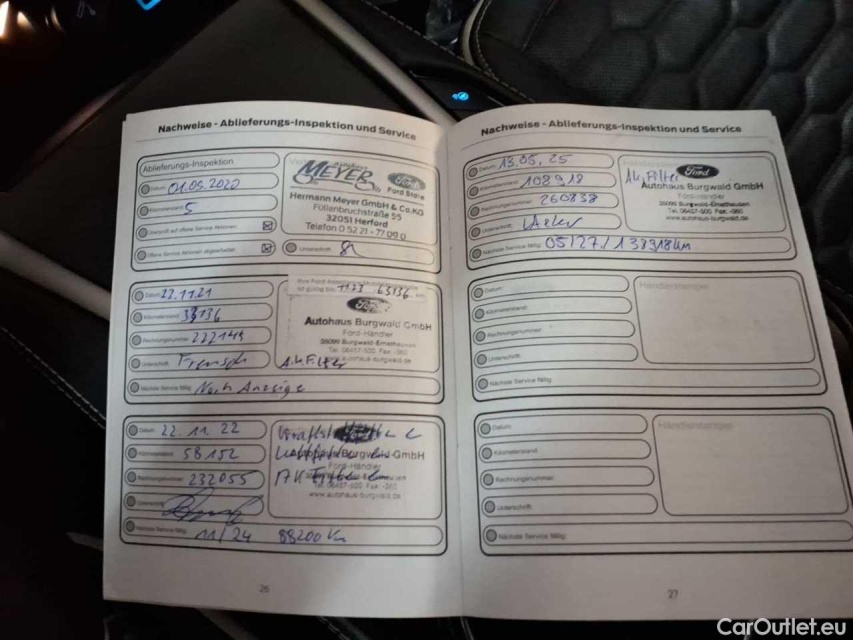 Nachweise - Ablieferungs-Inspektion und Service
Ablieferungs-Inspektion
Datum 01.09.2020
Kilometerstand 5
Überprüft auf offene Service Aktionen
Offene Service Aktionen abgearbeitet
MEYER
Ford
Ford Store
Hermann Meyer GmbH & Co.KG
Füllenbruchstraße 55
32051 Herford
Telefon 0 52 21 - 77 09 0
Unterschrift
Datum 22.11.21
Kilometerstand 33136
Rechnungsnummer 222149
Unterschrift
Nächste Service fällig: Nach Anzeige
1123 63136
Ford
Autohaus Burgwald GmbH
Ford-Händler
35099 Burgwald-Ernsthausen
Tel. 06457-500 Fax: -360
www.autohaus-burgwald.de
A.K. Filter
Datum 22.11.22
Kilometerstand 58152
Rechnungsnummer 232055
Unterschrift
Nächste Service fällig: 11/24 88200 Km
Autohaus Burgwald GmbH
Ford-Händler
Tel. 06457-500 Fax: -360
www.autohaus-burgwald.de
26
Nachweise - Ablieferungs-Inspektion und Service
Datum 13.05.25
Kilometerstand 108918
Rechnungsnummer 260838
Unterschrift
Nächste Service fällig: 05/27/138918 km
A.K. Filter
Ford
Autohaus Burgwald GmbH
Ford-Händler
35099 Burgwald-Ernsthausen
Tel. 06457-500 Fax: -360
www.autohaus-burgwald.de
Datum
Kilometerstand
Rechnungsnummer
Unterschrift
Nächste Service fällig:
Händlerstempel
Datum
Kilometerstand
Rechnungsnummer
Unterschrift
Nächste Service fällig:
Händlerstempel
27
CarOutlet.eu